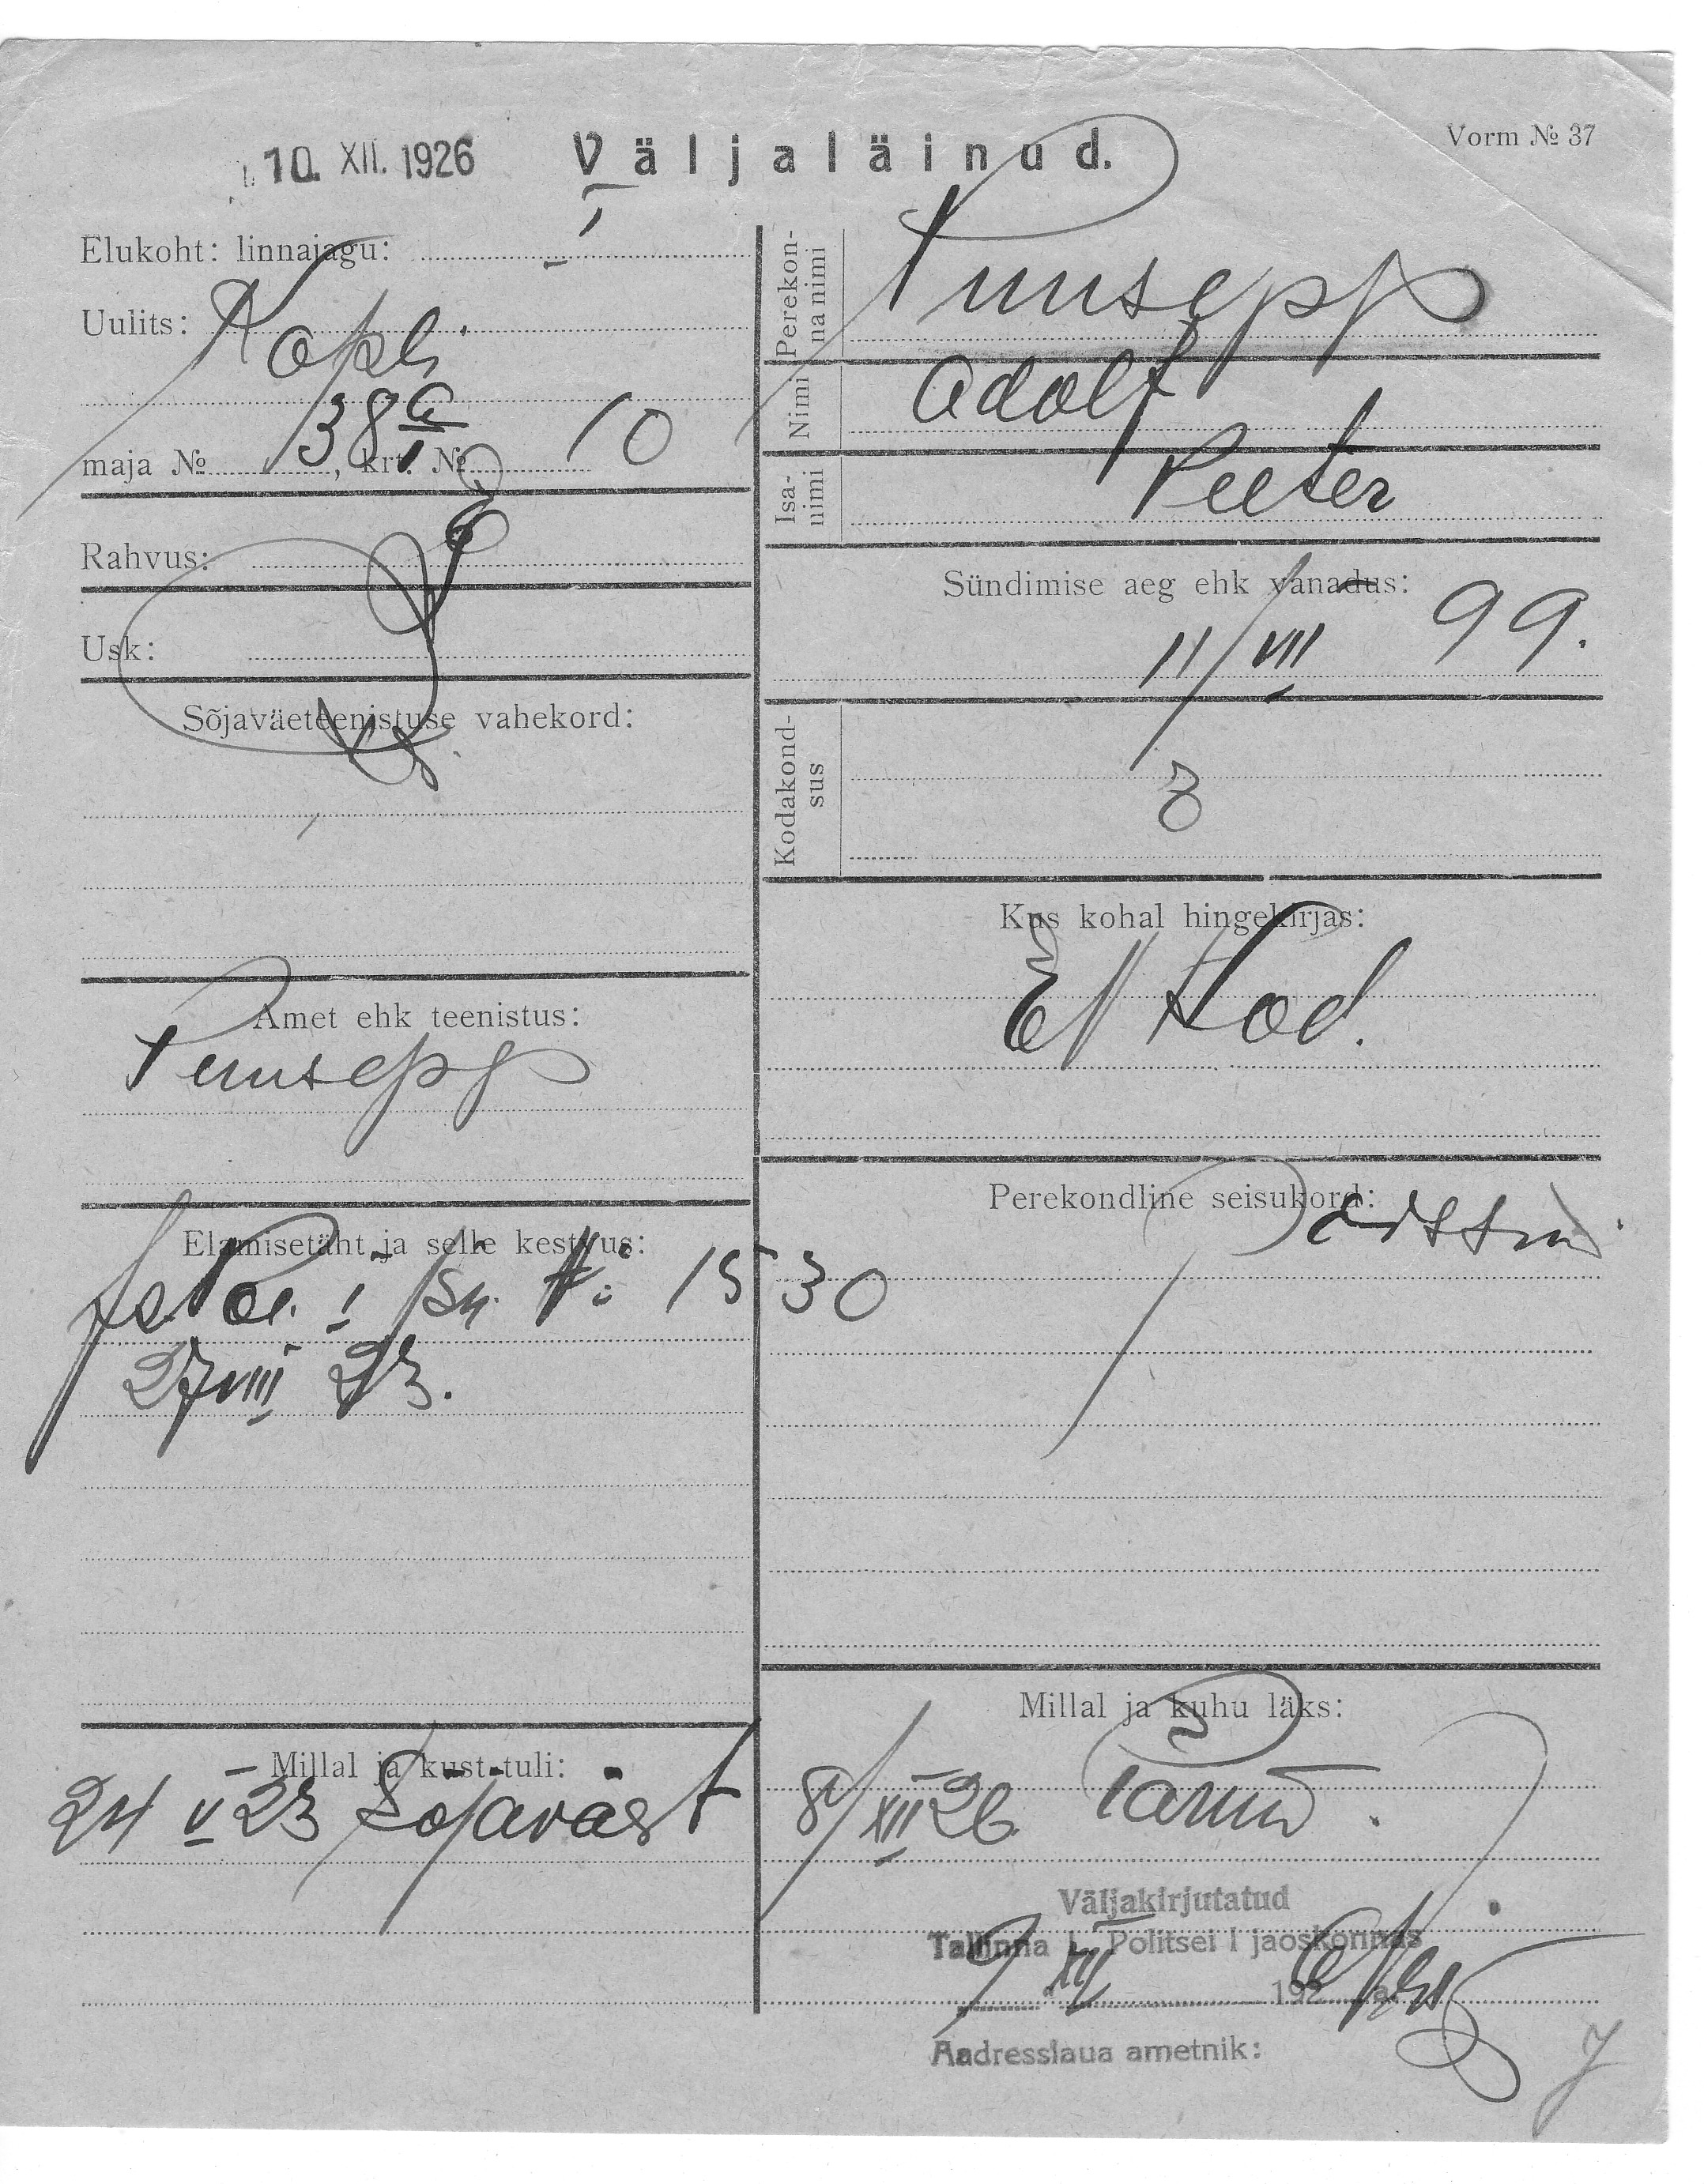 10. XII. 1926
Väljaläinud.
Vorm № 37
Elukoht: linnajagu: I
Uulits: Kopli
maja № 38a, krt. № 10
Rahvus:
Usk:
Sõjaväeteenistuse vahekord:
Amet ehk teenistus:
Puusepp
Elamisetäht ja selle kestvus:
1530
27 VIII 23.
Millal ja kust tuli:
24 V 23 Sõjaväest
Perekonna nimi
Puusepp
Nimi
Adolf
Isanimi
Peeter
Sündimise aeg ehk vanadus:
11/VII 99.
Kodakondsus
Kus kohal hingekirjas:
Kod.
Perekondline seisukord:
Millal ja kuhu läks:
8/XII 26. Pärnu.
Väljakirjutatud
Tallinna L. Politsei I jaoskonnas
9 XII 1926 a.
Aadresslaua ametnik: